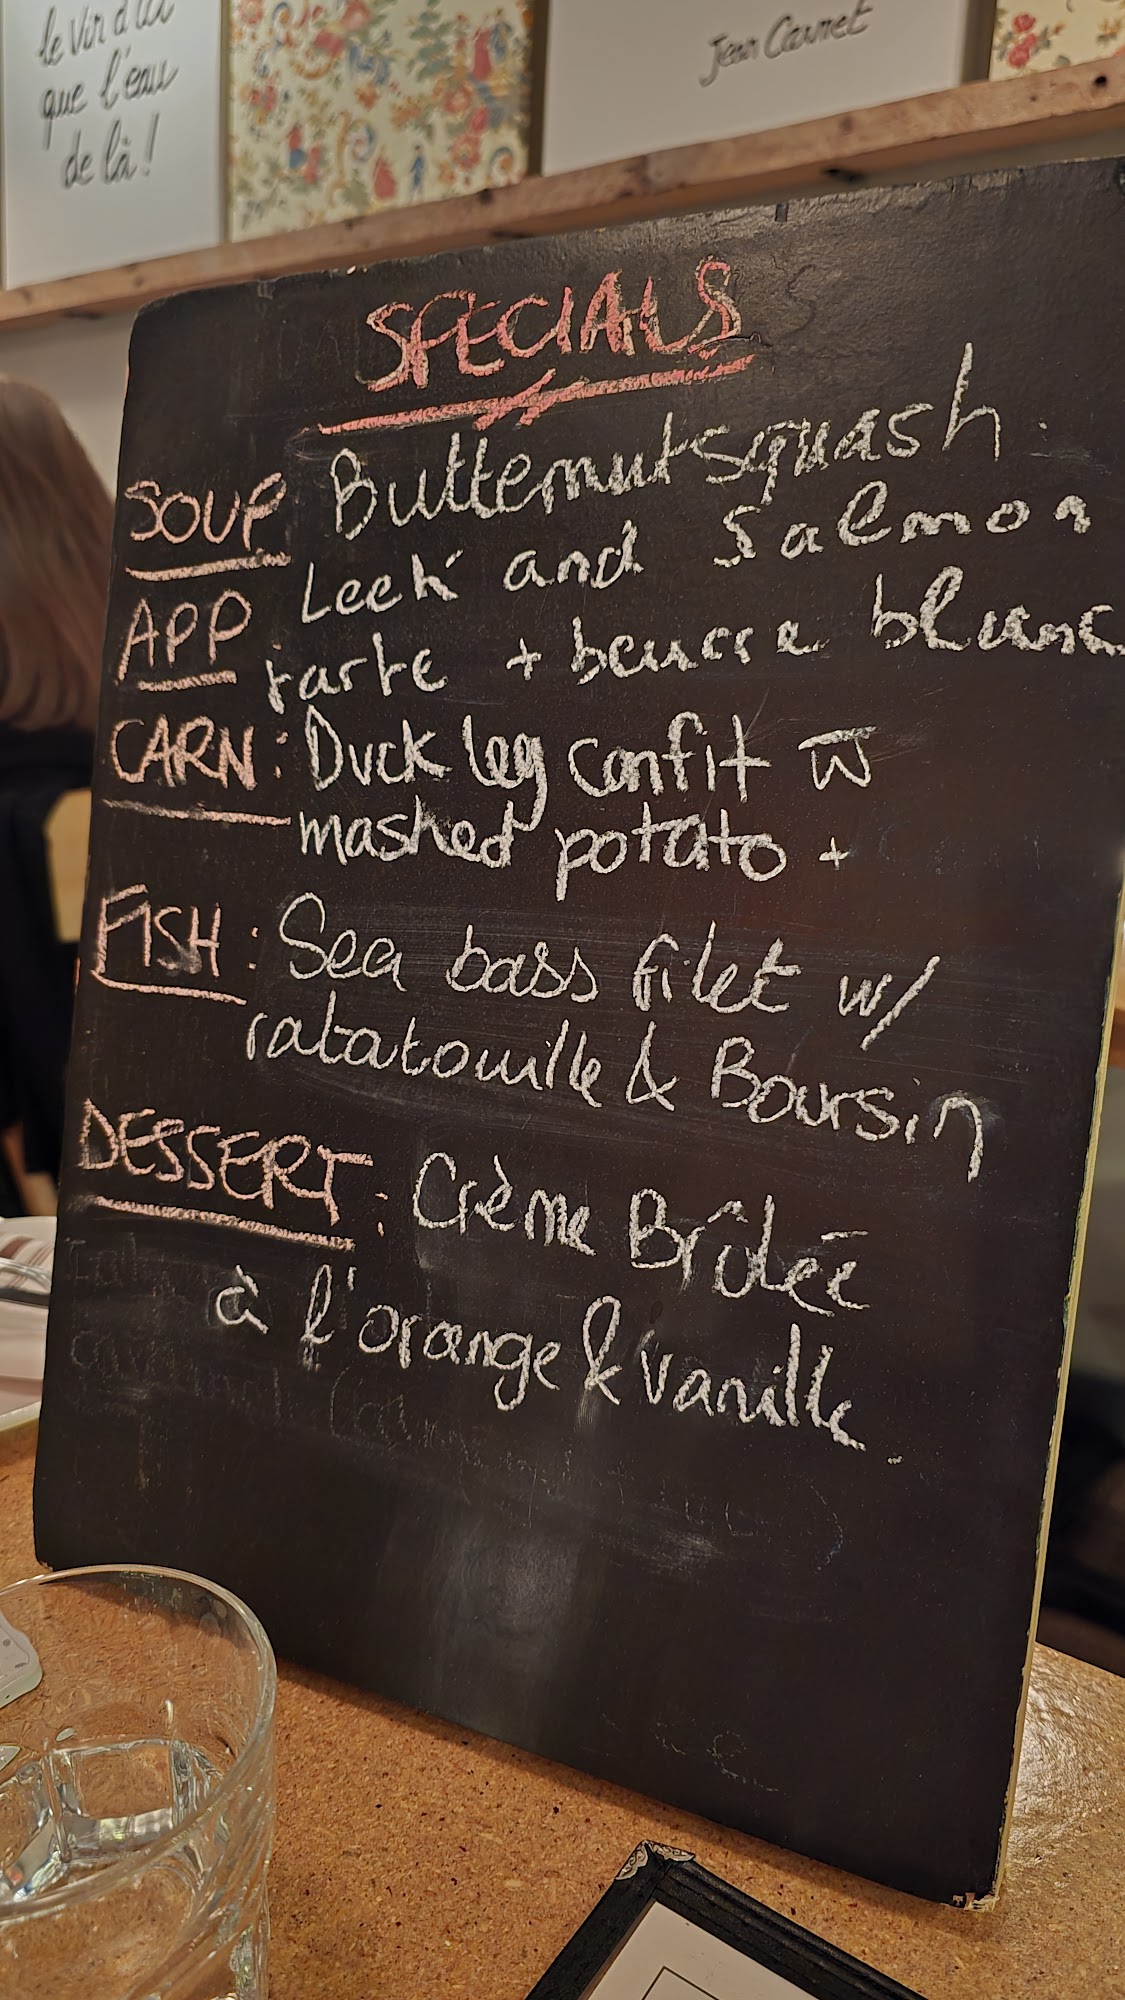 le vin d'ici
que l'eau
de là!
Jean Carmet
SPECIALS
SOUP Butternut squash.
APP Leek and Salmon
tarte + beurre blanc
CARN: Duck leg confit w
mashed potato +
FISH: Sea bass filet w/
ratatouille & Boursin
DESSERT: Crème Brûlée
à l'orange & vanille.